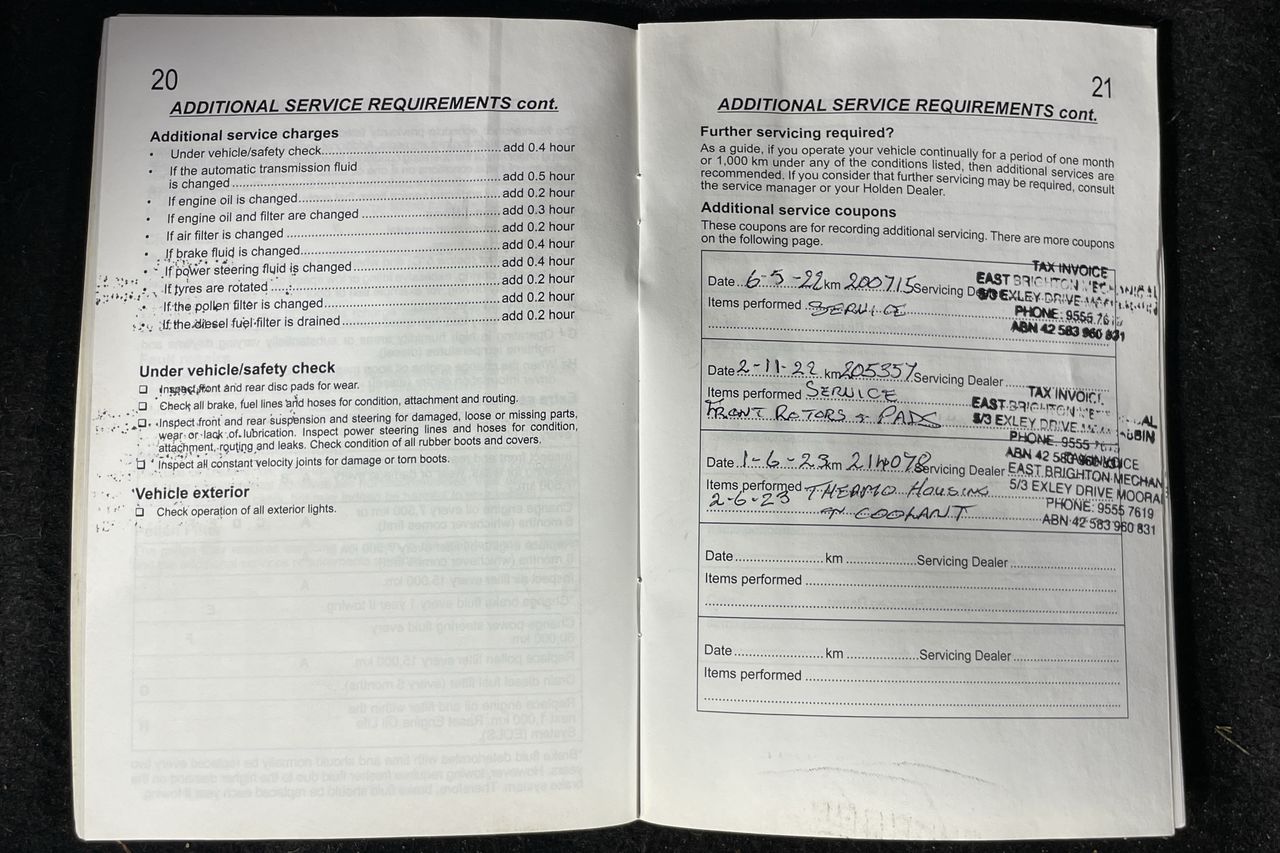 20
ADDITIONAL SERVICE REQUIREMENTS cont.
Additional service charges
• Under vehicle/safety check............ add 0.4 hour
• If the automatic transmission fluid
is changed............ add 0.5 hour
• If engine oil is changed............ add 0.2 hour
• If engine oil and filter are changed............ add 0.3 hour
• If air filter is changed............ add 0.2 hour
• If brake fluid is changed............ add 0.4 hour
• If power steering fluid is changed............ add 0.4 hour
• If tyres are rotated............ add 0.2 hour
• If the pollen filter is changed............ add 0.2 hour
• If the diesel fuel filter is drained............ add 0.2 hour
Under vehicle/safety check
❏ Inspect front and rear disc pads for wear.
❏ Check all brake, fuel lines and hoses for condition, attachment and routing.
❏ Inspect front and rear suspension and steering for damaged, loose or missing parts,
wear or lack of lubrication. Inspect power steering lines and hoses for condition,
attachment, routing and leaks. Check condition of all rubber boots and covers.
❏ Inspect all constant velocity joints for damage or torn boots.
Vehicle exterior
❏ Check operation of all exterior lights.
21
ADDITIONAL SERVICE REQUIREMENTS cont.
Further servicing required?
As a guide, if you operate your vehicle continually for a period of one month
or 1,000 km under any of the conditions listed, then additional services are
recommended. If you consider that further servicing may be required, consult
the service manager or your Holden Dealer.
Additional service coupons
These coupons are for recording additional servicing. There are more coupons
on the following page.
TAX INVOICE
EAST BRIGHTON
5/3 EXLEY DRIVE
PHONE: 9555 76
ABN 42 583 960 831
Date 6-5-22 km 200715 Servicing
Items performed SERVICE
Date 2-11-22 km 205357 Servicing Dealer
Items performed SERVICE
FRONT ROTORS & PADS
TAX INVOICE
EAST BRIGHTON
5/3 EXLEY DRIVE
PHONE: 9555
ABN 42 58
Date 1-6-23 km 214078 Servicing Dealer
Items performed THERMO HOUSING
2-6-23 & COOLANT
EAST BRIGHTON MECHAN
5/3 EXLEY DRIVE MOORA
PHONE: 9555 7619
ABN 42 583 960 831
Date............ km............ Servicing Dealer............
Items performed............
Date............ km............ Servicing Dealer............
Items performed............